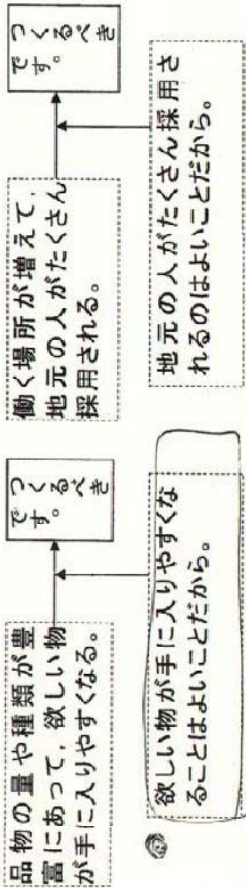 品物の量や種類が豊
富にあって,欲しい物
が手に入りやすくなる。
つくるべき
です。
欲しい物が手に入りやすくな
ることはよいことだから。
働く場所が増えて,
地元の人がたくさん
採用される。
つくるべき
です。
地元の人がたくさん採用さ
れるのはよいことだから。